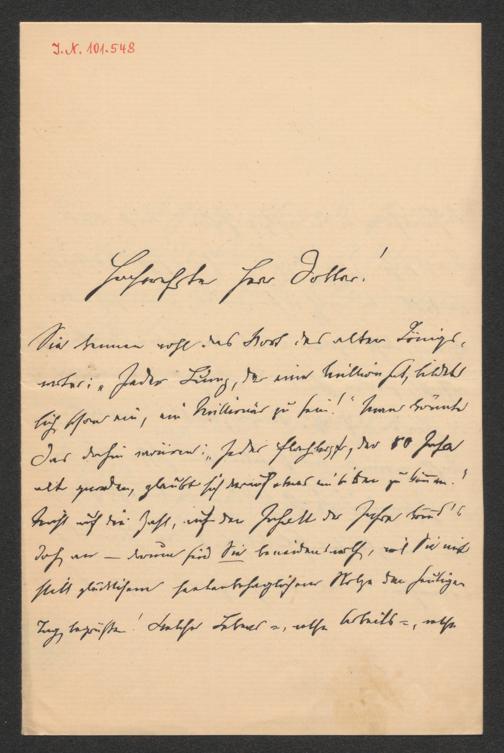 J.N. 101.548
Hochverehrter Herr Doktor!
Sie kennen wohl das Wort des alten Königs-
warter: „Jeder Lump, der eine Million hat, bildet
sich schon ein, ein Millionär zu sein!" Man könnte
das dahin variiren: „Jeder Flachkopf, der 80 Jahre
alt geworden, glaubt sich darauf etwas einbilden zu können!"
Nicht auf die Zahl, auf den Inhalt der Jahre kommt's
doch an — darum sind Sie beneidenswerth, weil Sie mit
still glücklichem seelenbehaglichem Stolze den heutigen
Tag begrüßen! Welcher Lebens=, welche Arbeits=, welche